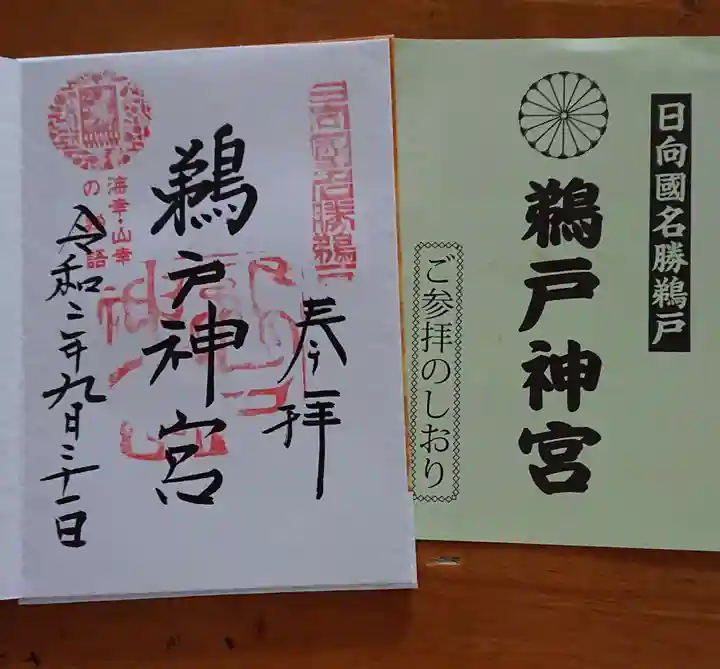 日向國名勝鵜戸
奉拝
鵜戸神宮
海幸・山幸
の物語
令和二年九月二十一日
日向國名勝鵜戸
鵜戸神宮
ご参拝のしおり